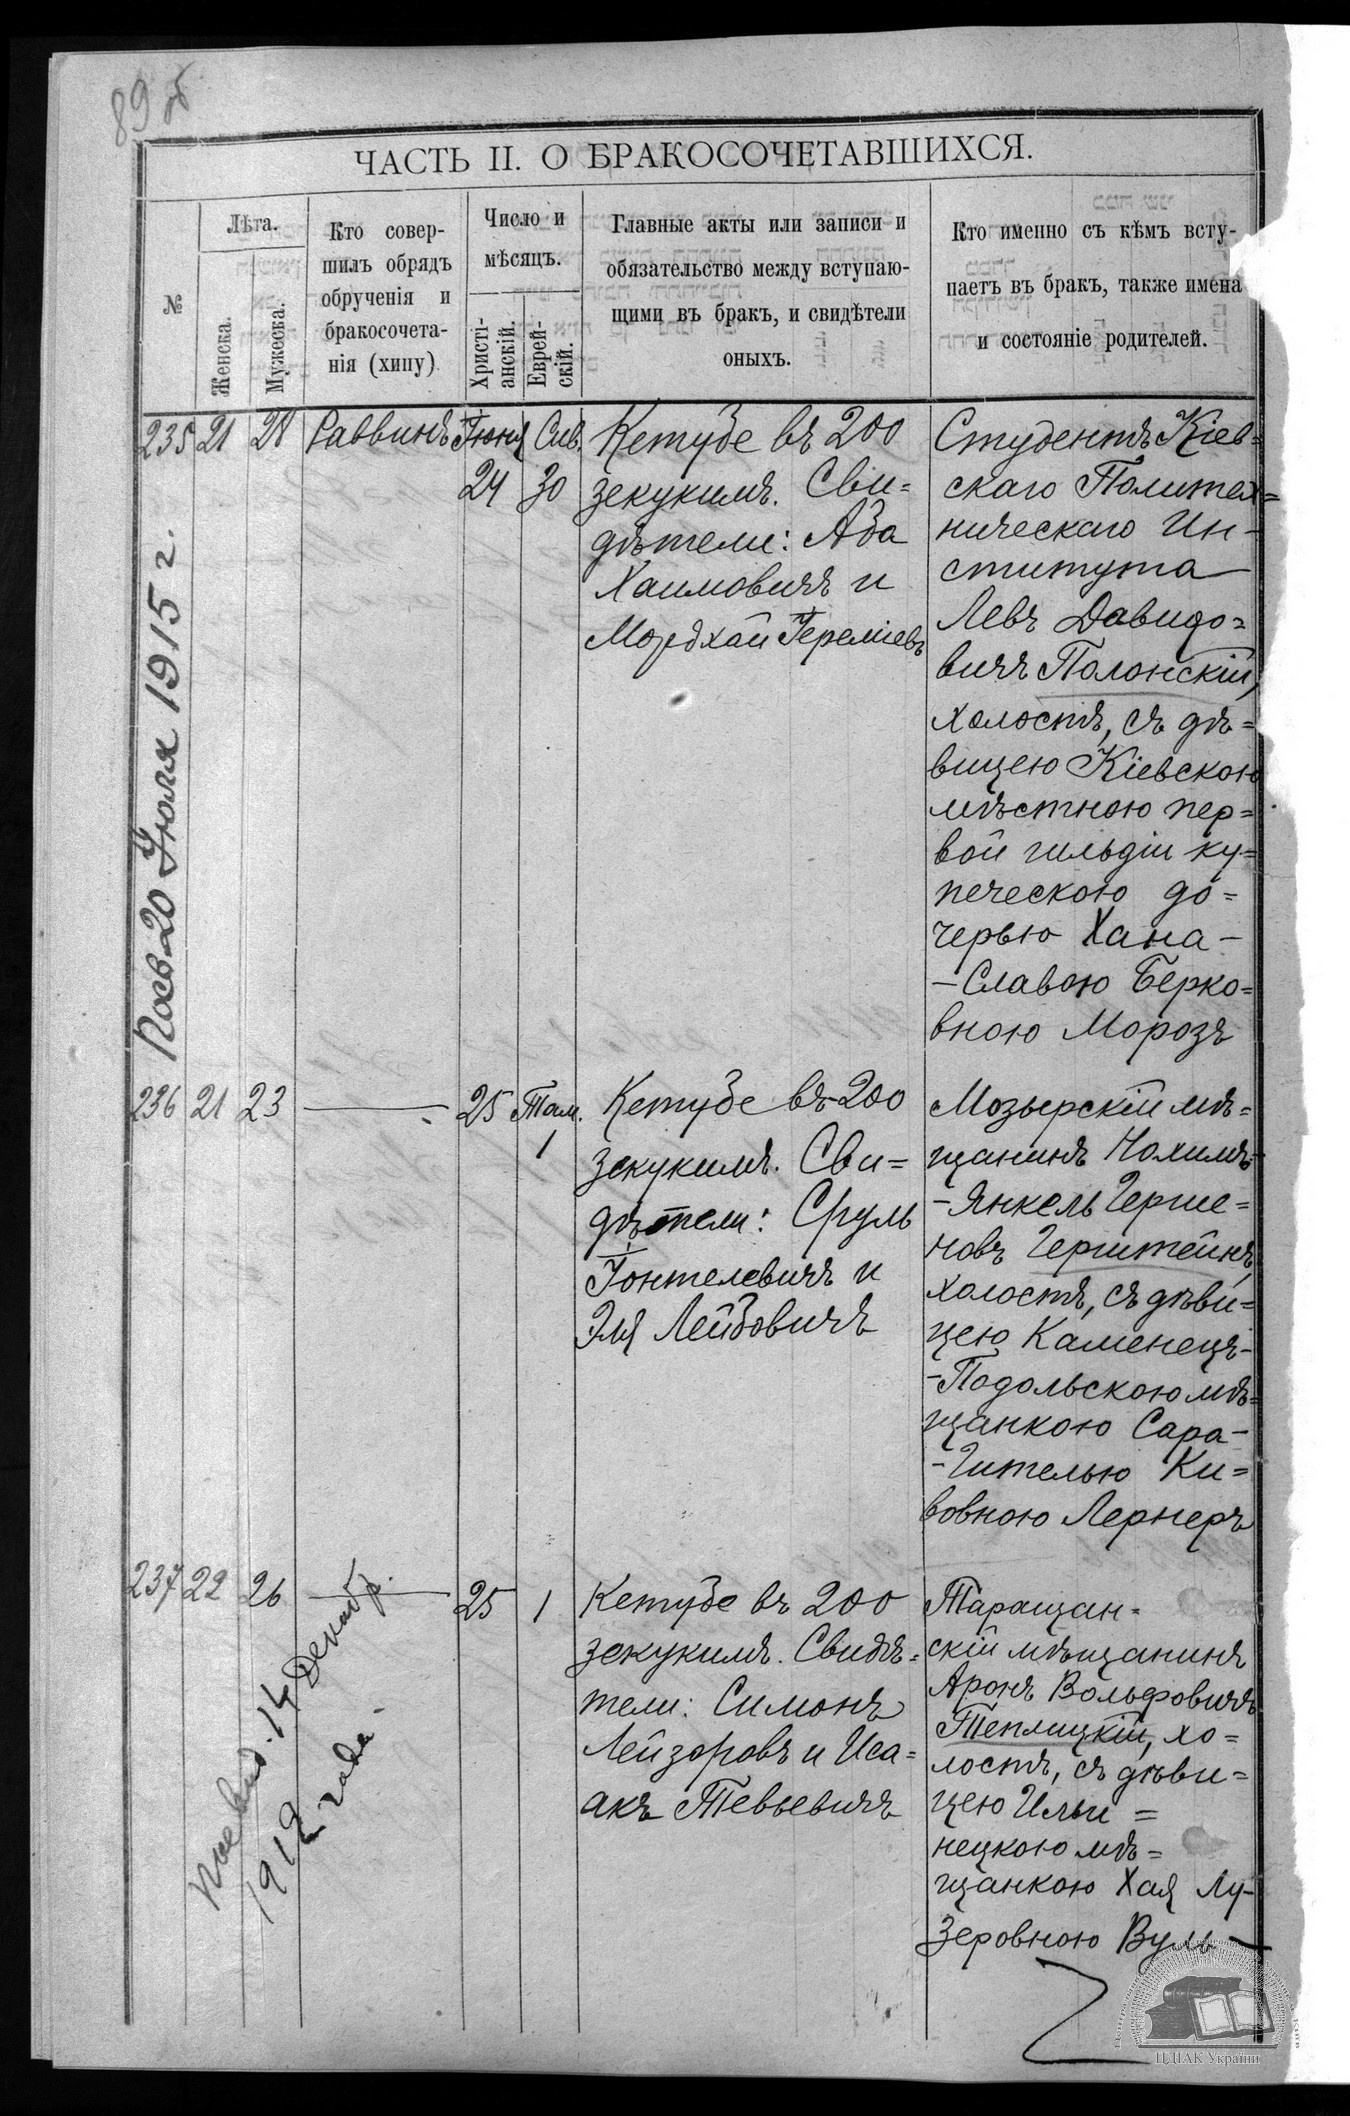 89 об
ЧАСТЬ II. О БРАКОСОЧЕТАВШИХСЯ.
№
Лѣта.
Женска.
Мужеска.
Кто совер-
шилъ обрядъ
обрученія и
бракосочета-
нія (хипу)
Число и
мѣсяцъ.
Христі-
анскій.
Еврей-
скій.
Главные акты или записи и
обязательство между вступаю-
щими въ бракъ, и свидѣтели
оныхъ.
Кто именно съ кѣмъ всту-
паетъ въ бракъ, также имена
и состояніе родителей.
235 21 28 Раввинъ Іюня Сив.
24 30
Кетубе въ 200
зекукимъ. Сви=
дѣтели: Аба
Хаимовичъ и
Мордхай Іереміевъ
Студентъ Кіев=
скаго Политех=
ническаго Ин-
ститута
Левъ Давидо=
вичъ Полонскій,
холостъ, съ дѣ=
вицею Кіевскою
мѣстною пер=
вой гильдіи ку=
печескою до=
черью Хана-
-Славою Берко=
вною Морозъ
20 Іюля 1915 г.
236 21 23 25 Там.
1
Кетубе въ 200
зекукимъ. Сви=
дѣтели: Сруль
Іонтелевичъ и
Эля Лейбовичъ
Мозырскій мѣ=
щанинъ Нохимъ-
-Янкель Герше=
новъ Герштейнъ,
холостъ, съ дѣви=
цею Каменецъ-
-Подольскою мѣ=
щанкою Сара-
-Гителью Ки=
вовною Лернеръ
237 22 26 25 1
Кетубе въ 200
зекукимъ. Свидѣ=
тели: Симонъ
Лейзоровъ и Иса=
акъ Тевьевичъ
Таращан-
скій мѣщанинъ
Аронъ Вольфовичъ
Теплицкій, хо=
лостъ, съ дѣви=
цею Ильи=
нецкою мѣ=
щанкою Хая Лу-
зеровною Вуль
14 Декабр.
1912 года
ЦДІАК України